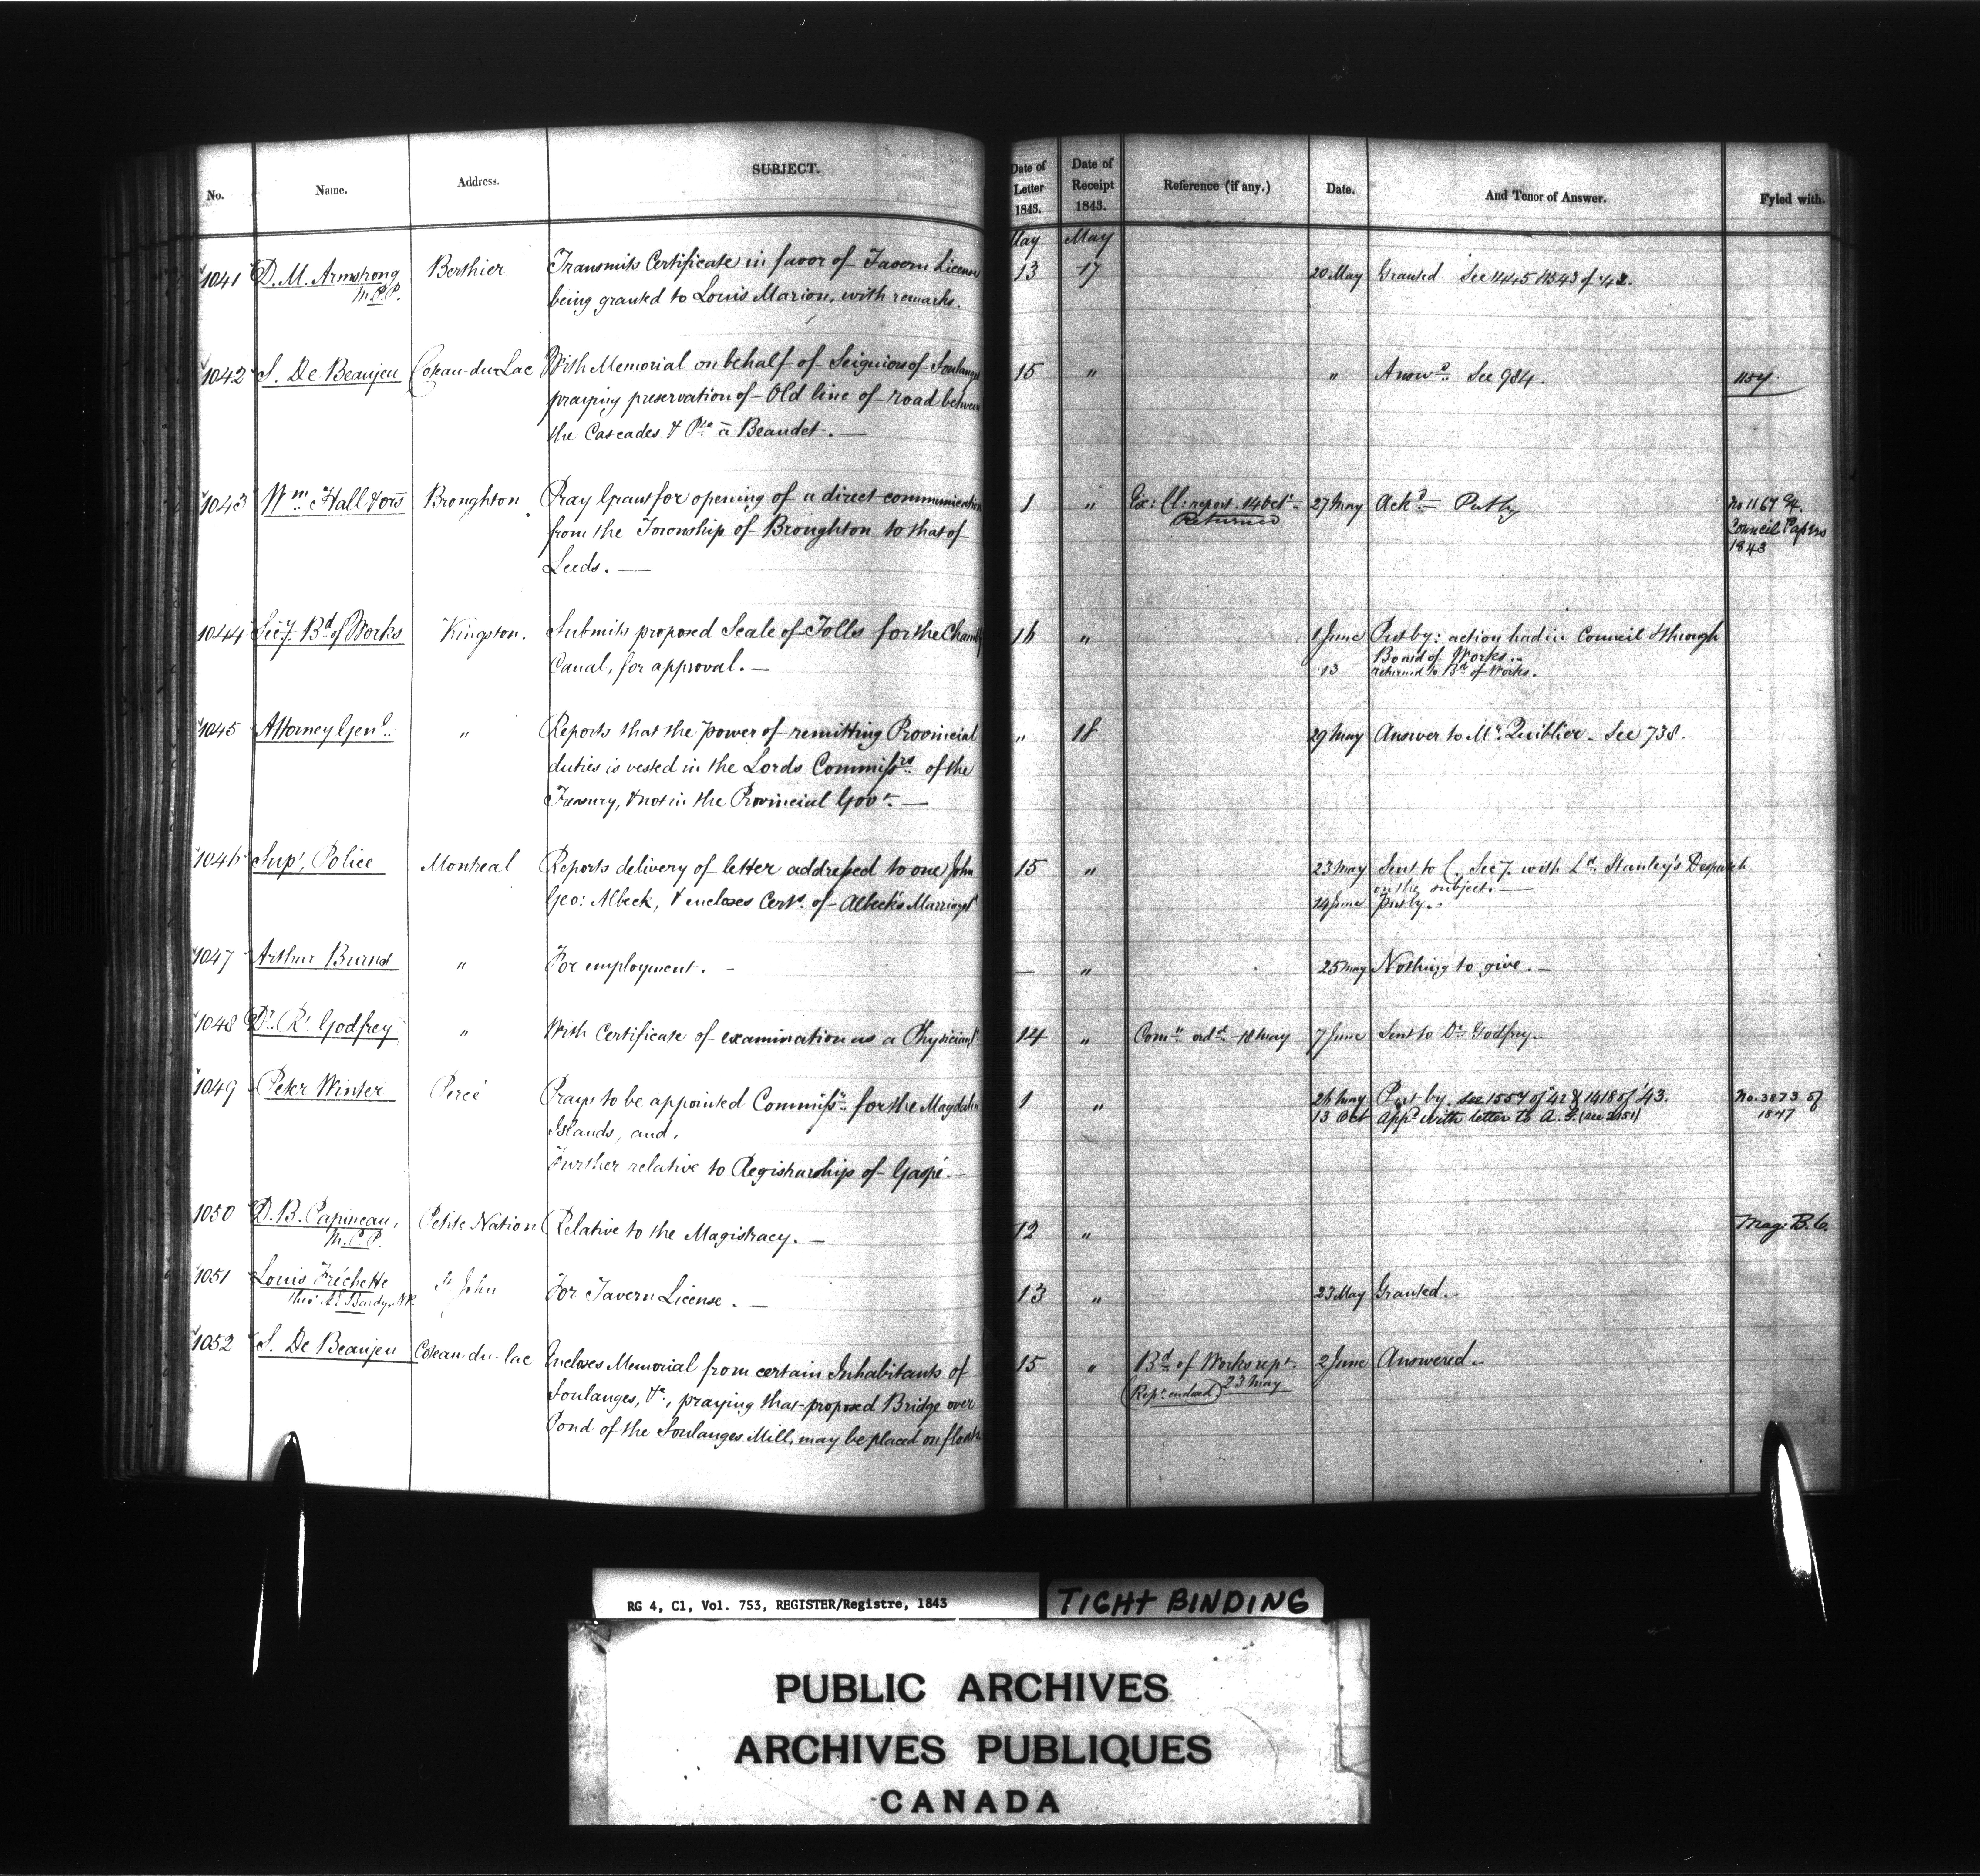 No. Name. Address. SUBJECT. Date of Letter 1843. Date of Receipt 1843. Reference (if any.) Date. And Tenor of Answer. Fyled with.
May May
1041 D. M. Armstrong Berthier Transmits Certificate in favor of Tavern License 13 17 20 May Granted. See
M.P.P. being granted to Louis Marion, with remarks.
1042 S. De Beaujeu Coteau-du-Lac With Memorial on behalf of Seigniors of Soulanges 15 " " Answd. See 984. 1157
praying preservation of Old line of road between
the Cascades & Pte à Beaudet. —
1043 Wm Hall & ors Broughton Pray Grant for opening of a direct communication 1 " Ex: Cl: report 14 Oct. 27 May Ackd — Put by No 1167 Ex.
from the Township of Broughton to that of Returned Council Papers
Leeds. — 1843
1044 Secy. Bd of Works Kingston. Submits proposed Scale of Tolls for the Chambly 16 " 1 June Put by: action had in Council & through
Canal, for approval. — Board of Works..
13 returned to Bd of Works.
1045 Attorney Genl. " Reports that the power of remitting Provincial " 18 29 May Answer to Mr. Quiblier. See 738.
duties is vested in the Lords Commissrs. of the
Treasury, & not in the Provincial Govt. —
1046 Supt. Police Montreal Reports delivery of letter addressed to one John 15 " 23 May Sent to C. Secy. with Ld. Stanley's Despatch
on the subject. —
Geo: Albeck, & encloses Certe. of Albeck's Marriage 14 June Put by.
1047 Arthur Burns " For employment. — — " 25 May Nothing to give. —
1048 Dr. R. Godfrey " With Certificate of examination as a Physician 14 " Comn. ordd. 18 May 7 June Sent to Dr. Godfrey.
1049 Peter Winter Percé Prays to be appointed Commissr. for the Magdalen 1 " 26 May Put by. See 1557 of 42 & 1418 of '43. No. 3873 of
Islands, and, 13 Oct Appd with letter to A. G. (see 2451) 1847
Further relative to Registrarship of Gaspé —
1050 D. B. Papineau, Petite Nation Relative to the Magistracy. — 12 " Mag. B. C.
M.P.P.
1051 Louis Fréchette St John For Tavern License. — 13 " 23 May Granted.
thro' Bardy, N.P.
1052 S. De Beaujeu Coteau-du-lac Encloses Memorial from certain Inhabitants of 15 " Bd of Works rept. 2 June Answered.
Soulanges, &c., praying that proposed Bridge over (Rept. endsed) 23 May
Pond of the Soulanges Mill, may be placed on floats
RG 4, C1, Vol. 753, REGISTER/Registre, 1843
TIGHT BINDING
PUBLIC ARCHIVES
ARCHIVES PUBLIQUES
CANADA